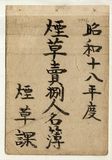 昭和十八年度
煙草賣捌人名簿
煙草課